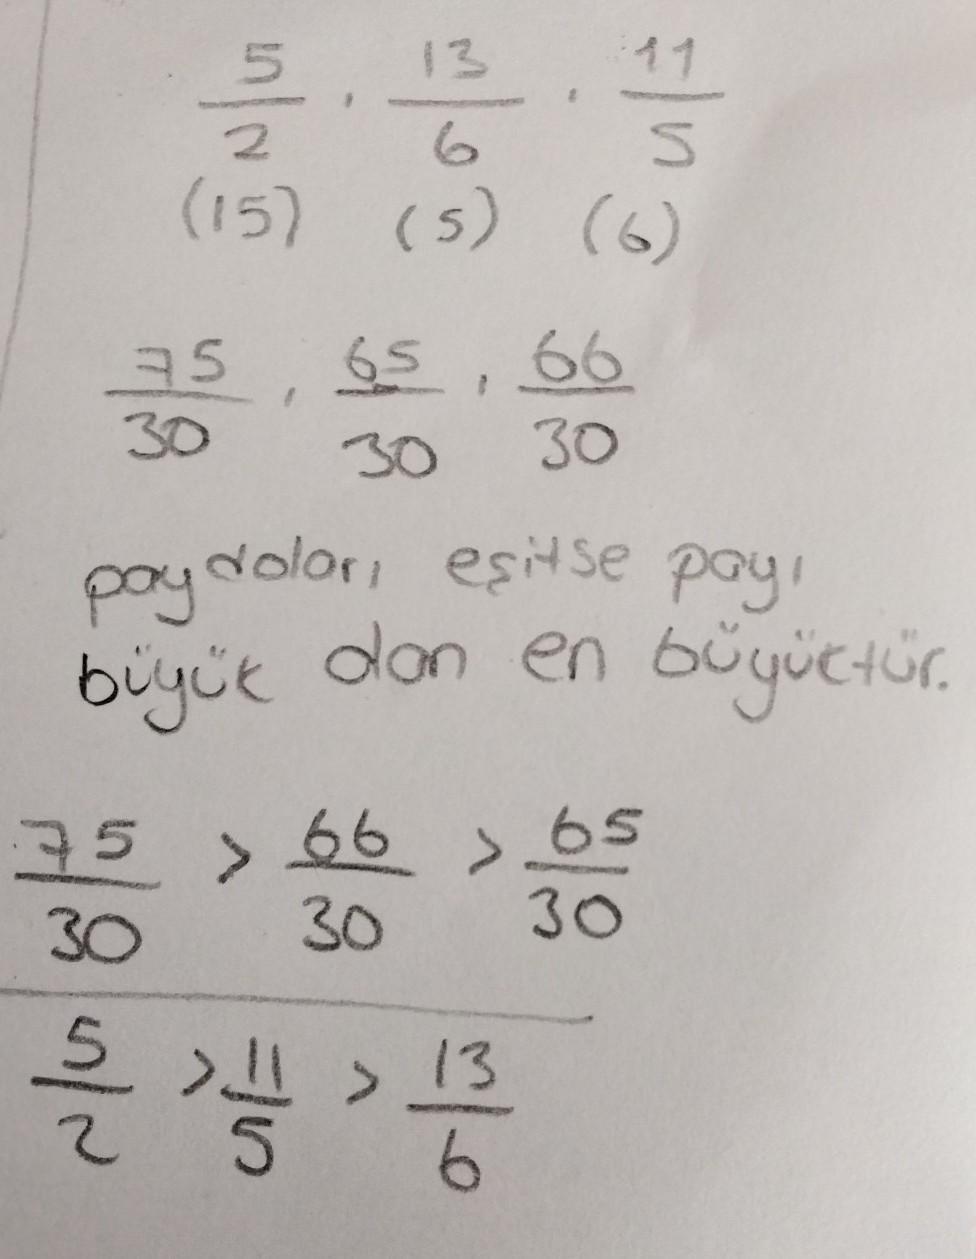 5/2 , 13/6 , 11/5
(15) (5) (6)
75/30 , 65/30 , 66/30
paydaları eşitse payı
büyük olan en büyüktür.
75/30 > 66/30 > 65/30
5/2 > 11/5 > 13/6